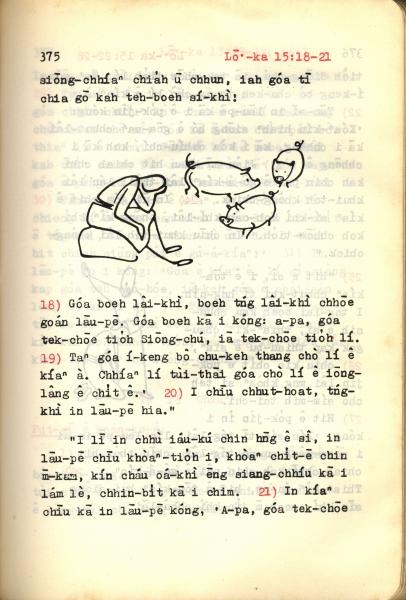 375 Lō·-ka 15:18-21
siōng-chhíaⁿ chia̍h ū chhun, iah góa tī
chia gō kah teh-boeh sí-khì!
18) Góa boeh lâi-khì, boeh tńg lâi-khì chhōe
goán lāu-pē. Góa boeh kā i kóng: a-pa, góa
tek-chōe tio̍h Siōng-chú, iā tek-chōe tio̍h lí.
19) Taⁿ góa í-keng bô chu-keh thang chò lí ê
kíaⁿ à. Chhíaⁿ lí tùi-thāi góa chò lí ê iong-
lâng ê chi̍t ê. 20) I chīu chhut-hoat, tńg-
khì in lāu-pē hia."
"I lī in chhù iáu-kú chin hn̄g ê sî, in
lāu-pē chīu khòaⁿ-tio̍h i, khòaⁿ chi̍t-ē chin
m̄-kam, kín cháu oá-khì ēng siang-chhíu kā i
lám lè, chhin-bi̍t kā i chim. 21) In kíaⁿ
chīu kā in lāu-pē kóng, 'A-pa, góa tek-chōe